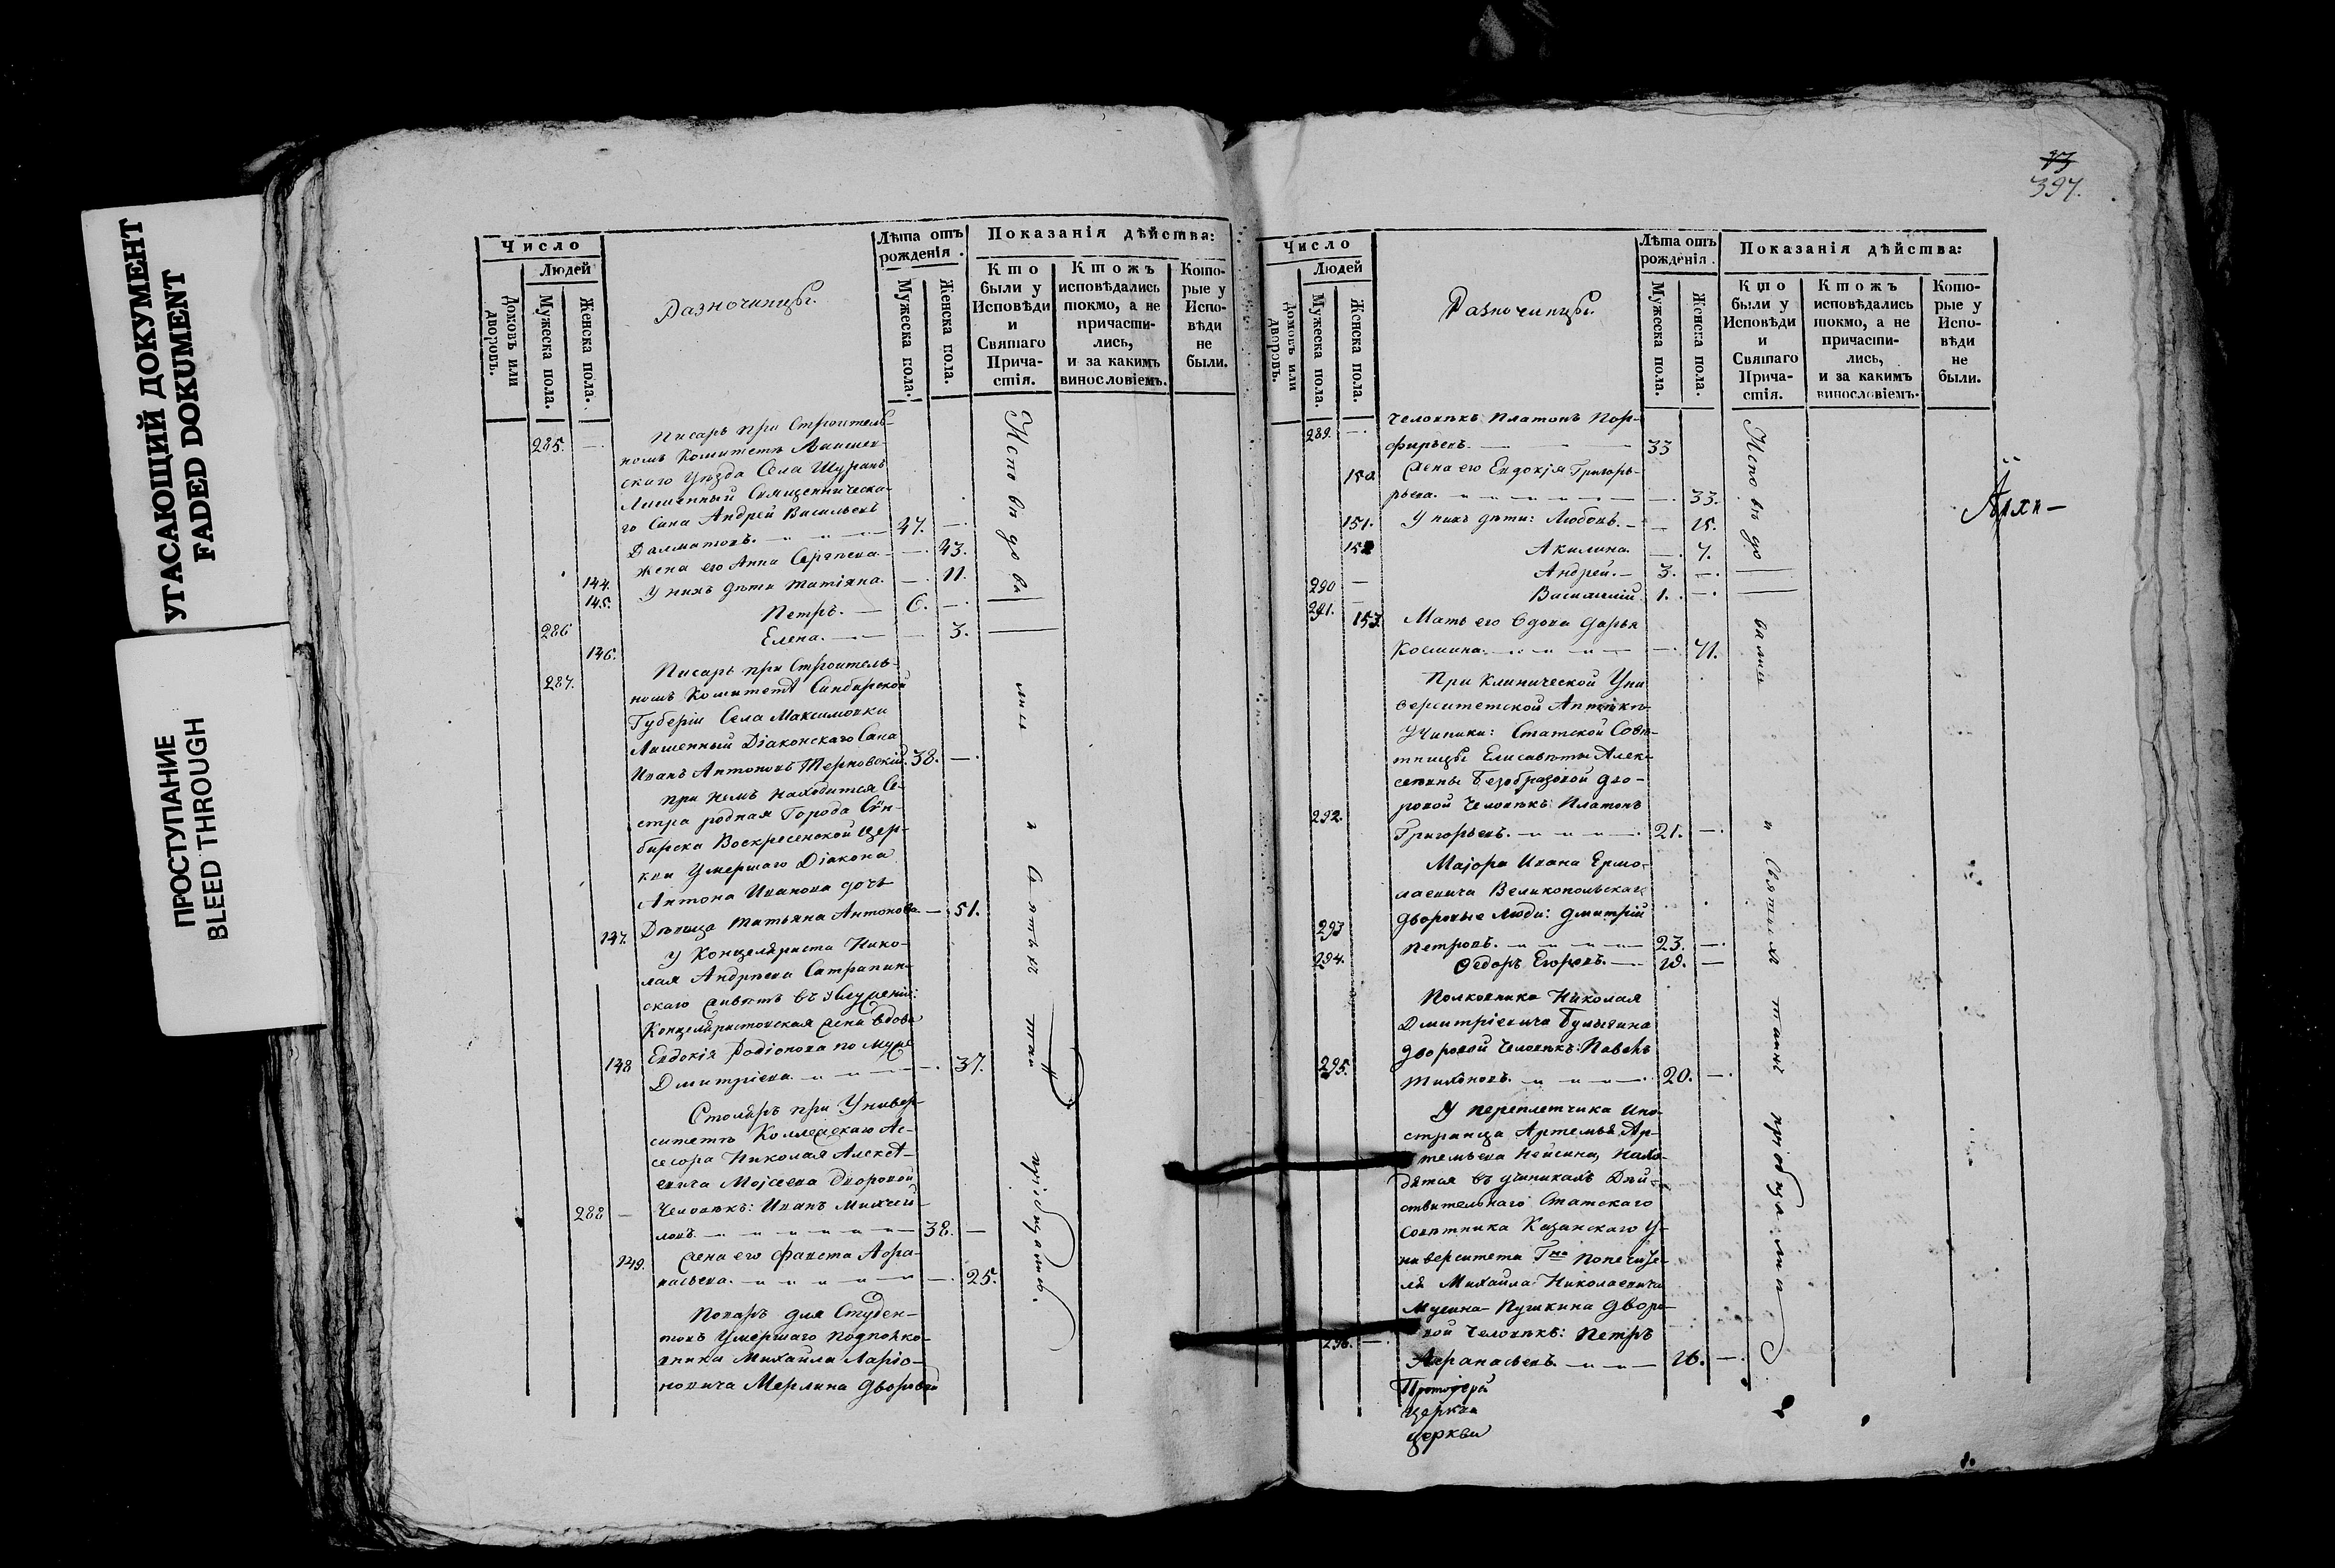 УГАСАЮЩИЙ ДОКУМЕНТ
FADED DOKUMENT
ПРОСТУПАНИЕ
BLEED THROUGH
Число
Людей
Домовъ или дворовъ.
Мужеска пола.
Женска пола.
Разночинцы.
Лѣта отъ рожденія.
Мужеска пола.
Женска пола.
Показанія дѣйства:
Кто были у Исповѣди и Святаго Причастія.
Ктожъ исповѣдались токмо, а не причастились, и за какимъ винословіемъ.
Которые у Исповѣди не были.
285. — Писарь при Строитель-
номъ Комитетѣ
скаго Уѣзда Села Шуранъ
Лишенный Священническа-
го Сана Андрей Васильевъ
Далматовъ. 47. —
144. жена его Анна Сергѣева — 43.
145. У нихъ дѣти Татіяна. — 11.
286 Петръ. — 6. —
146. Елена. — 3.
287. Писарь при Строитель-
номъ Комитетѣ Синбирской
Губерніи Села Максимовки
Лишенный Діаконскаго Сана
Иванъ Антоновъ Терновскій. 38. —
при немъ находится Се-
стра родная Города Син-
бирска Воскресенской Цер-
кви Умершаго Діакона
Антона Иванова дочь
147. Дѣвица Татьяна Антонова — 51.
У Канцеляриста Нико-
лая Андрѣева
скаго живетъ въ услуженіи:
Канцеляристовская жена вдова
148 Евдокія Родіонова по мужѣ
Дмитріева. — 37.
Столяръ при Универ-
ситетѣ Коллежскаго Ас-
сесора Николая Алексѣ-
евича Мойсеева дворовой
288 — Человѣкъ: Иванъ Михай-
ловъ. 38. —
149. жена его Фавста Афа-
насьева. — 25.
Поваръ для Студен-
товъ Умершаго Подполко-
вника Михайла Ларіо-
новича Мерлина дворовой
Исповѣдовались и Святыхъ Таинъ пріобщались.
93
397.
Число
Людей
Домовъ или дворовъ.
Мужеска пола.
Женска пола.
Разночинцы.
Лѣта отъ рожденія.
Мужеска пола.
Женска пола.
Показанія дѣйства:
Кто были у Исповѣди и Святаго Причастія.
Ктожъ исповѣдались токмо, а не причастились, и за какимъ винословіемъ.
Которые у Исповѣди не были.
289. — Человѣкъ Платонъ Пор-
фирьевъ. 33
150. жена его Евдокія Григорь-
рьева. — 33.
151. У нихъ дѣти: Любовь. — 15.
152 Акилина. — 7.
290 — Андрей. — 3. —
291. — Василій 1. —
153. Мать его вдова Дарья
Космина. — 71.
При Клинической Уни
верситетской Аптекѣ
Ученики: Статской Совѣ-
тницы Елисаветы Алек-
сеевны Безобразовой дво-
292. ровой Человѣкъ: Платонъ
Григорьевъ. 21. —
Маіора Ивана Ермо-
лаевича Великопольскаго
293 дворовые люди: Дмитрій
Петровъ. 23. —
294. Ѳедоръ Егоровъ. — 19. —
Полковника Николая
Дмитріевича Булыгина
дворовой Человѣкъ: Павелъ
295. Тихоновъ. 20. —
У переплетчика Ино-
странца Артемья Ар-
темьева Нейсина, нахо-
дятся въ ученикахъ Дѣй-
ствительнаго Статскаго
Совѣтника Казанскаго У-
ниверситета Гна Попечите-
ля Михайла Николаевича
Мусина-Пушкина дворо-
296. — вой Человѣкъ: Петръ
Афанасьевъ. 16. —
Исповѣдовались и Святыхъ Таинъ пріобщались
Протоіерей
Церкви
церкви
Архи-